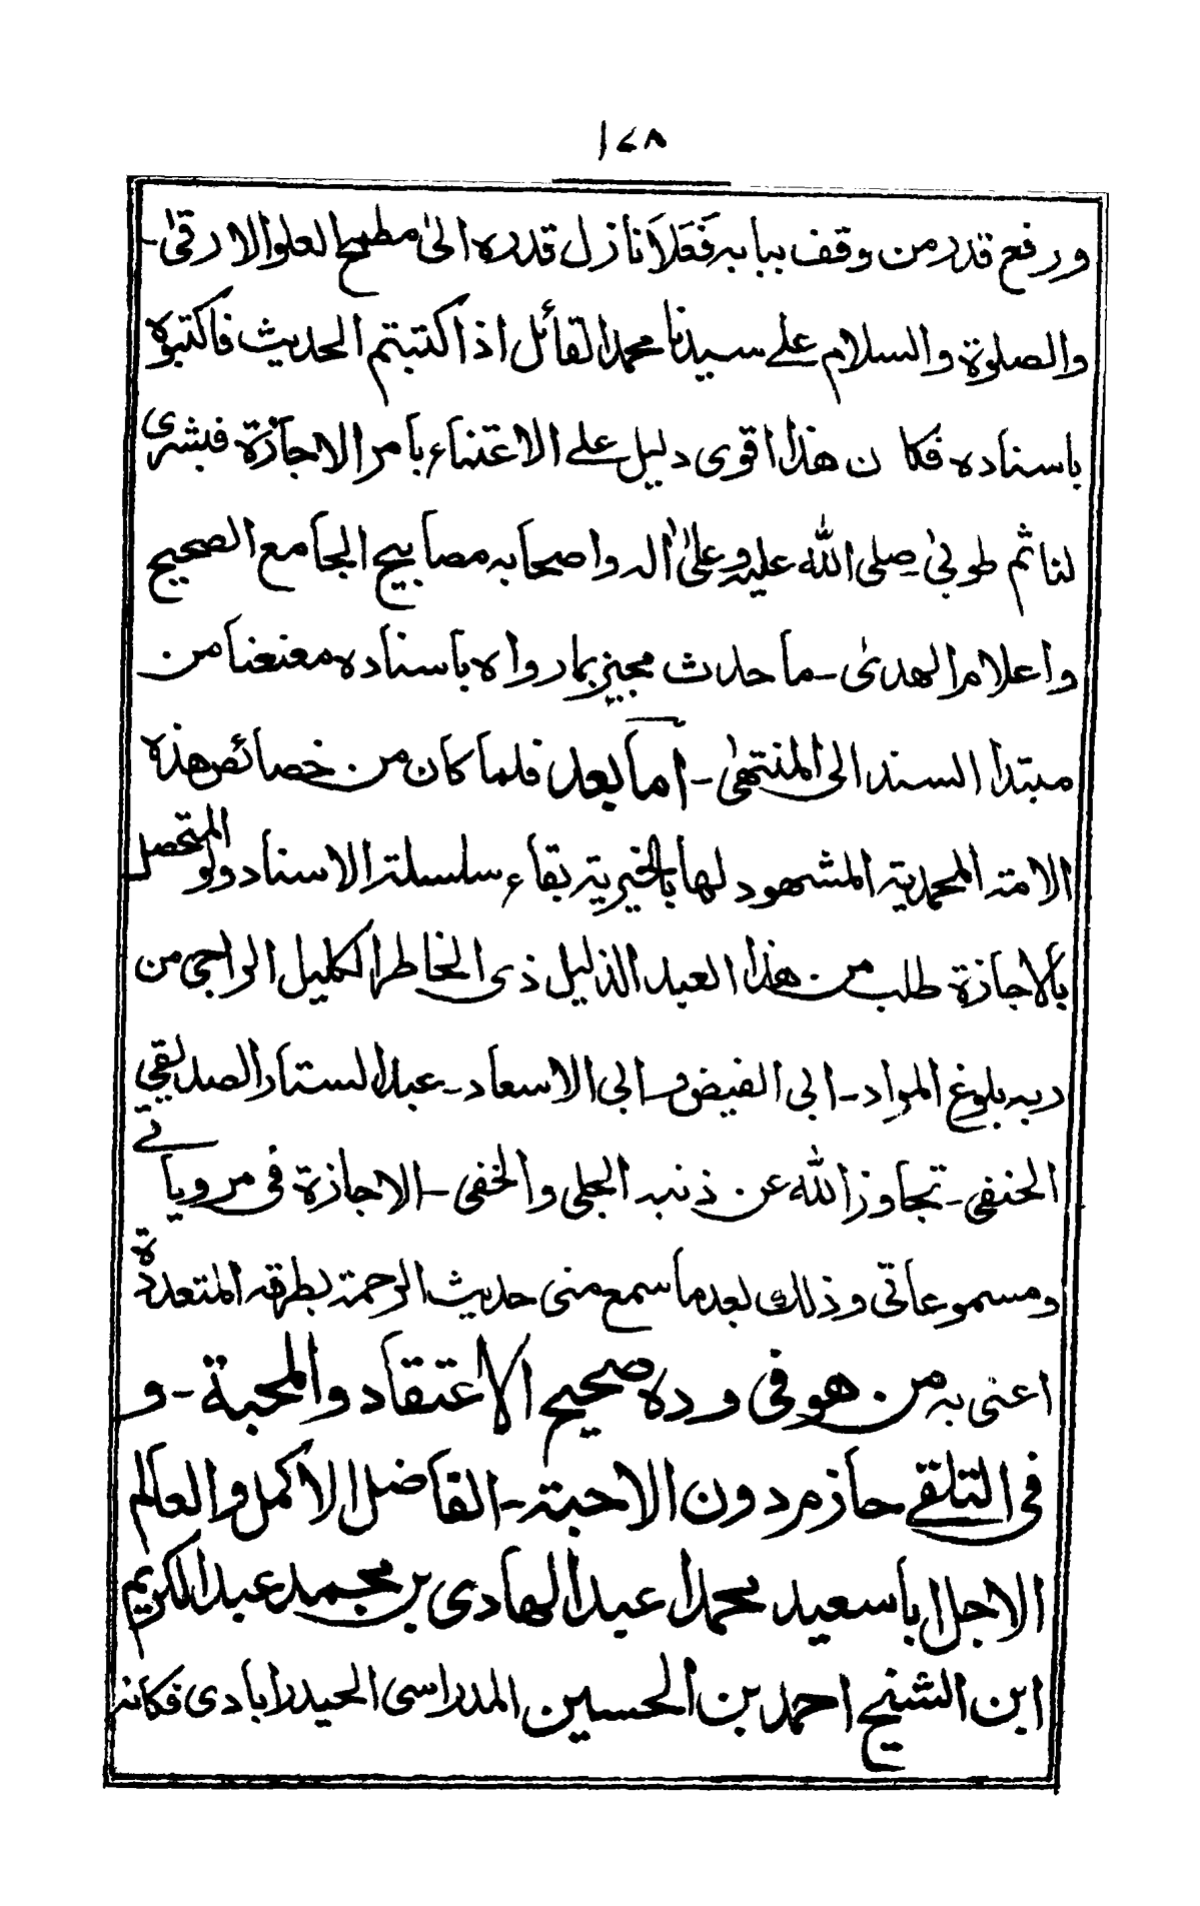 ١٤٨
ورفع قدر من وقف ببابه فَعَلَا نازل قدره الىٰ مطمح العلو الارقىٰ-
والصلوة والسلام علے سيدنا محمد القائل اذا كتبتم الحديث فاكتبوه
باسناده فكان هذا اقوى دليل علے الاعتناء بامر الاجازة فبشرى
لنا ثم طوبىٰ صلى الله عليه وعلىٰ اله واصحابه مصابيح الجامع الصحيح
واعلام الهدىٰ - ما حدث مجيز بما رواه باسناده معنعنا من
مبتدا السند الى المنتهىٰ - اما بعد فلما كان من خصائص هذه
الامة المحمدية المشهود لها بالخيرية بقاء سلسلة الاسناد ولو المتحصل
بالاجازة طلب من هذا العبد الذليل ذى الخاطر الكليل الراجى من
ربه بلوغ المراد - ابى الفيض و ابى الاسعاد - عبد الستار الصديقي
الحنفى - تجاوز الله عن ذنبه الجلى والخفى - الاجازة فى مروياتے
ومسموعاتى وذلك بعد ما سمع منى حديث الرحمة بطرقه المتعددة
اعنى به من هو فى وده صحيح الاعتقاد والمحبة - و
فى التلقے حازم دون الاحبة - الفاضل الاكمل والعالم
الاجل ابا سعيد محمدا عبد الهادى بن محمد عبد الكريم
ابن الشيخ احمد بن الحسين المدراسى الحيدرابادى فكانه